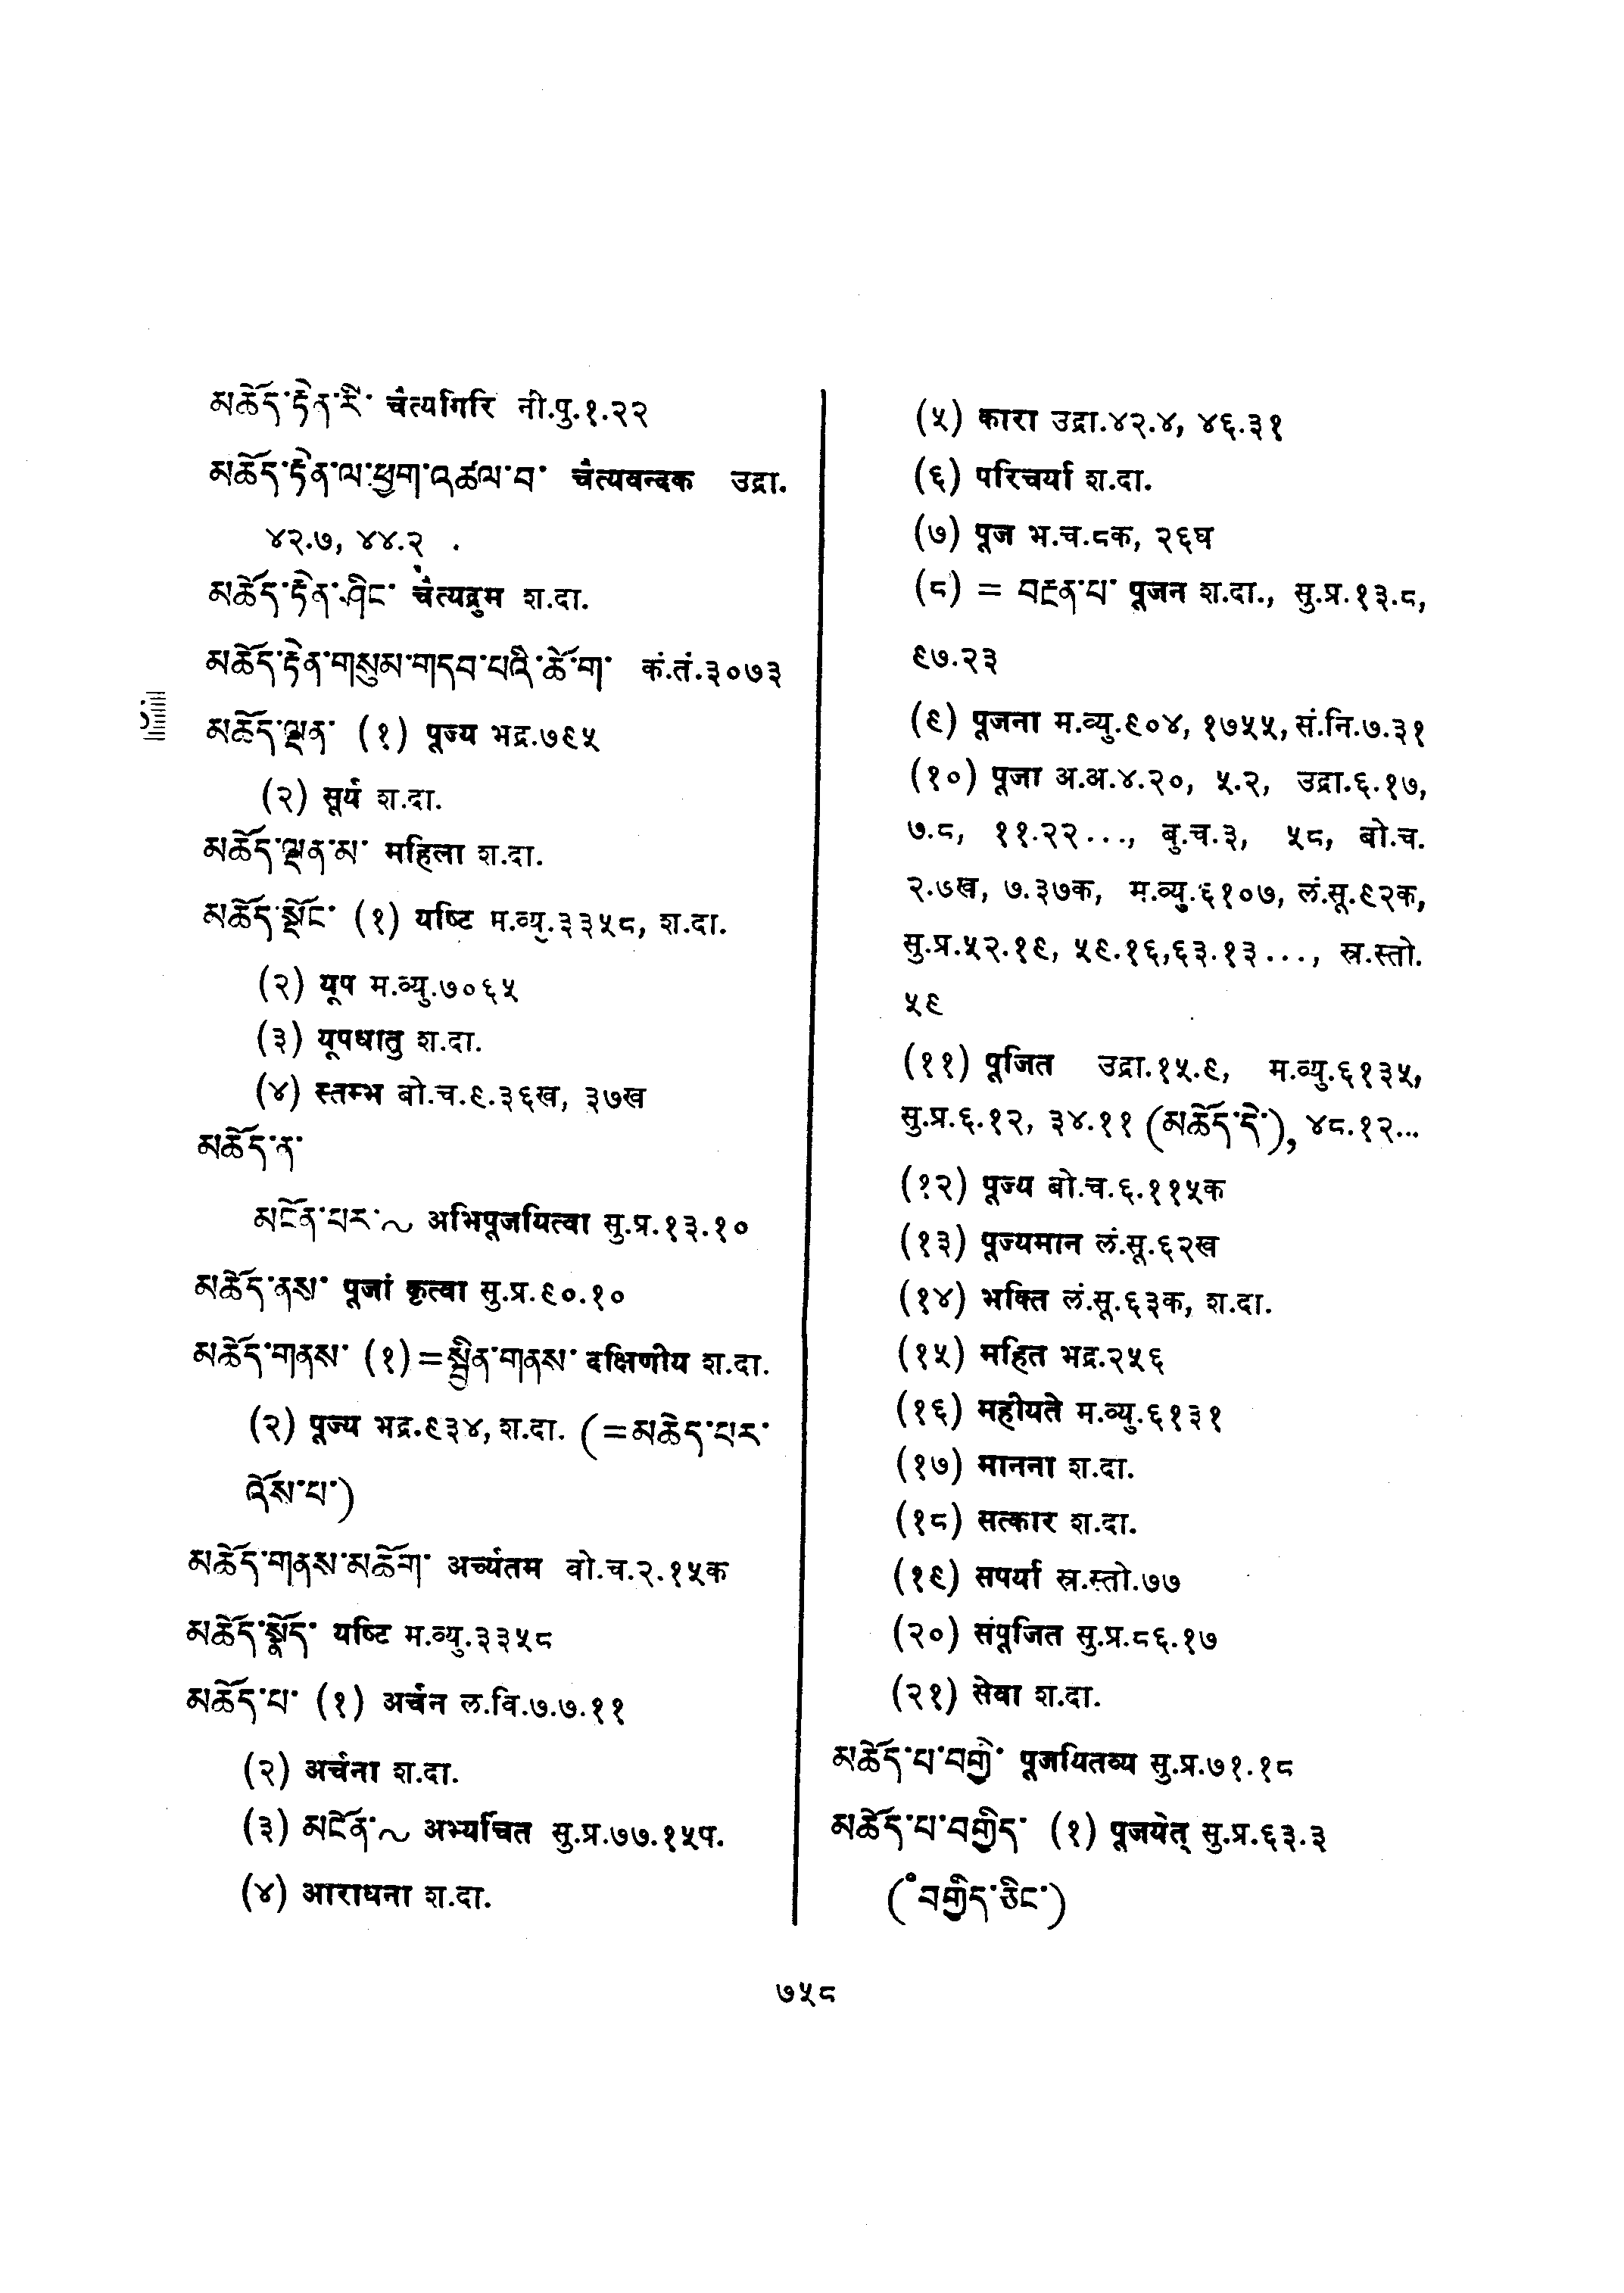 མཆོད་རྟེན་རི་ चैत्यगिरि नी.पु.१.२२
མཆོད་རྟེན་ལ་ཕྱག་འཚལ་བ་ चैत्यवन्दक उद्रा.
४२.७, ४४.२
མཆོད་རྟེན་ཤིང་ चैत्यद्रुम श.दा.
མཆོད་རྟེན་གསུམ་གདབ་པའི་ཆོ་ག་ कं.तं.३०७३
མཆོད་ལྡན་ (१) पूज्य भद्र.७९५
(२) सूर्य श.दा.
མཆོད་ལྡན་མ་ महिला श.दा.
མཆོད་སྡོང་ (१) यष्टि म.व्यु.३३५८, श.दा.
(२) यूप म.व्यु.७०६५
(३) यूपधातु श.दा.
(४) स्तम्भ बो.च.९.३६ख, ३७ख
མཆོད་ན་
མངོན་པར་~ अभिपूजयित्वा सु.प्र.१३.१०
མཆོད་ནས་ पूजां कृत्वा सु.प्र.९०.१०
མཆོད་གནས་ (१)=སྦྱིན་གནས་ दक्षिणीय श.दा.
(२) पूज्य भद्र.९३४, श.दा. (=མཆོད་པར་
འོས་པ་)
མཆོད་གནས་མཆོག་ अर्च्यतम बो.च.२.१५क
མཆོད་སྣོད་ यष्टि म.व्यु.३३५८
མཆོད་པ་ (१) अर्चन ल.वि.७.७.११
(२) अर्चना श.दा.
(३) མངོན་~ अभ्यर्चित सु.प्र.७७.१५प.
(४) आराधना श.दा.
(५) कारा उद्रा.४२.४, ४६.३१
(६) परिचर्या श.दा.
(७) पूज भ.च.८क, २६घ
(८) = བརྔན་པ་ पूजन श.दा., सु.प्र.१३.८,
९७.२३
(९) पूजना म.व्यु.९०४, १७५५, सं.नि.७.३१
(१०) पूजा अ.अ.४.२०, ५.२, उद्रा.६.१७,
७.८, ११.२२..., बु.च.३, ५८, बो.च.
२.७ख, ७.३७क, म.व्यु.६१०७, लं.सू.९२क,
सु.प्र.५२.१९, ५९.१६,६३.१३..., स्र.स्तो.
५९
(११) पूजित उद्रा.१५.९, म.व्यु.६१३५,
सु.प्र.६.१२, ३४.११ (མཆོད་དེ་), ४८.१२...
(१२) पूज्य बो.च.६.११५क
(१३) पूज्यमान लं.सू.६२ख
(१४) भक्ति लं.सू.६३क, श.दा.
(१५) महित भद्र.२५६
(१६) महीयते म.व्यु.६१३१
(१७) मानना श.दा.
(१८) सत्कार श.दा.
(१९) सपर्या स्र.स्तो.७७
(२०) संपूजित सु.प्र.८६.१७
(२१) सेवा श.दा.
མཆོད་པ་བགྱི་ पूजयितव्य सु.प्र.७१.१८
མཆོད་པ་བགྱིད་ (१) पूजयेत् सु.प्र.६३.३
(°བགྱིད་ཅིང་)
७५८